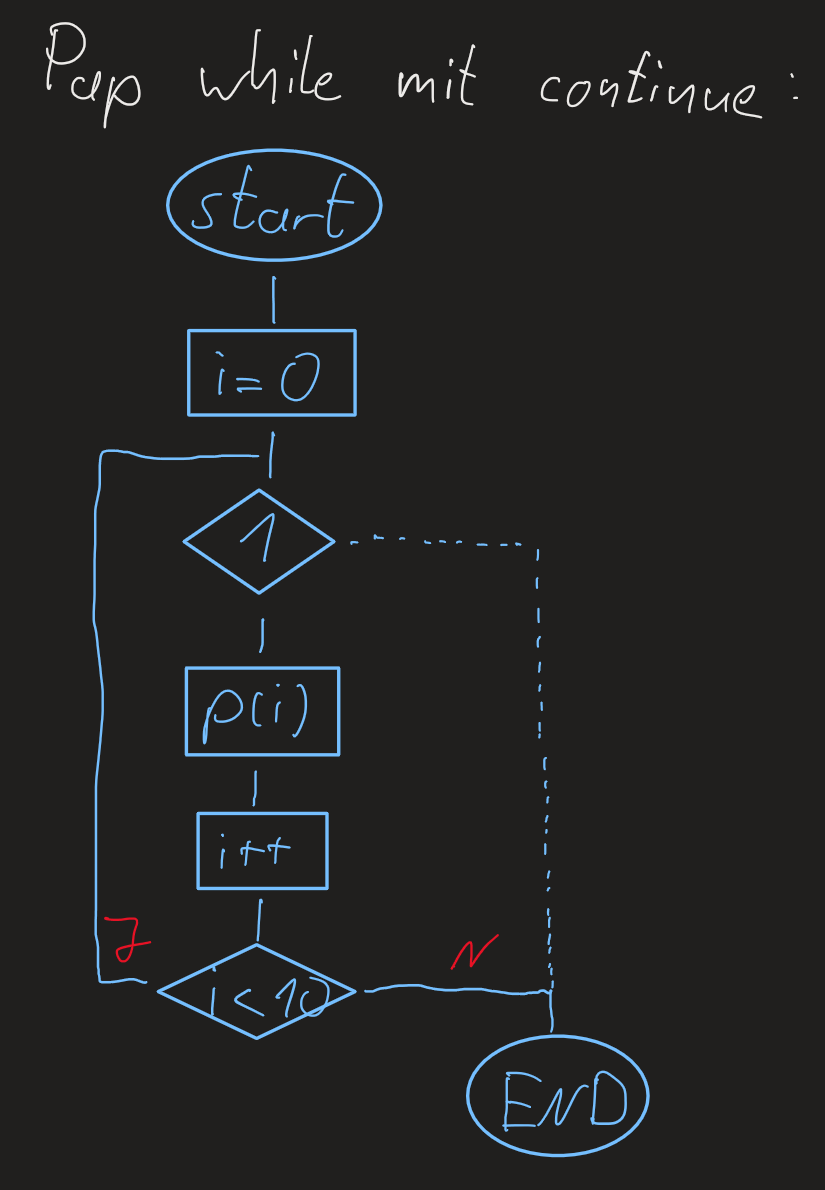 Pap while mit continue:
start
i=0
1
p(i)
i++
J
i<10
N
END